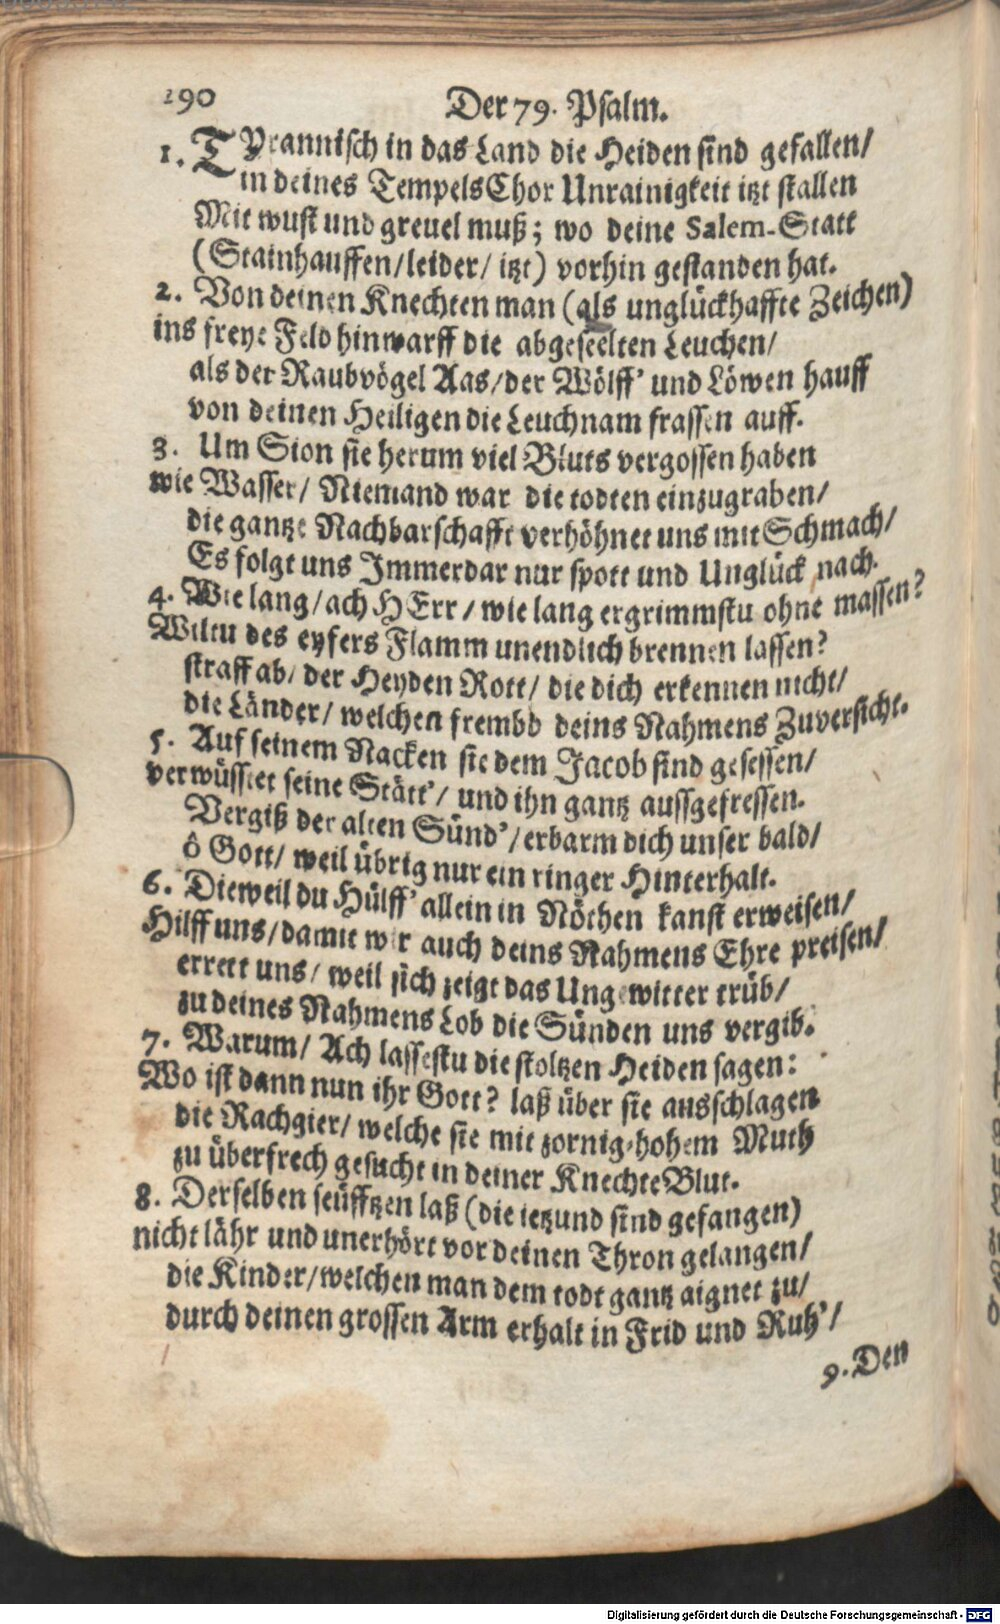 190
Der 79. Psalm.
1. TYrannisch in das Land die Heiden sind gefallen/
in deines Tempels Chor Unrainigkeit itzt stallen
Mit wust und greuel muß; wo deine Salem-Statt
(Stainhauffen/leider/ itzt) vorhin gestanden hat.
2. Von deinen Knechten man (als unglückhaffte Zeichen)
ins freye Feld hinwarff die abgeseelten Leuchen/
als der Raubvögel Aas/der Wölff' und Löwen hauff
von deinen Heiligen die Leuchnam frassen auff.
3. Um Sion sie herum viel Bluts vergossen haben
wie Wasser/ Niemand war die todten einzugraben/
die gantze Nachbarschafft verhöhnet uns mit Schmach/
Es folgt uns Immerdar nur spott und Unglück nach.
4. Wie lang/ach HErr/wie lang ergrimmstu ohne massen?
Wiltu des eyfers Flamm unendlich brennen lassen?
straff ab/ der Heyden Rott/ die dich erkennen nicht/
die Länder/ welchen frembd deins Nahmens Zuversicht.
5. Auf seinem Nacken sie dem Jacob sind gesessen/
verwüsstet seine Stätt'/ und ihn gantz aussgefressen.
Vergiß der alten Sünd'/erbarm dich unser bald/
ô Gott/ weil übrig nur ein ringer Hinterhalt.
6. Dieweil du Hülff' allein in Nöthen kanst erweisen/
Hilff uns/damit wir auch deins Nahmens Ehre preisen/
errett uns/ weil sich zeigt das Ungewitter trüb/
zu deines Nahmens Lob die Sünden uns vergib.
7. Warum/ Ach lassestu die stoltzen Heiden sagen:
Wo ist dann nun ihr Gott? laß über sie ausschlagen
die Rachgier/ welche sie mit zornig-hohem Muth
zu überfrech gesucht in deiner Knechte Blut.
8. Derselben seüfftzen laß (die ietzund sind gefangen)
nicht lähr und unerhört vor deinen Thron gelangen/
die Kinder/welchen man dem todt gantz aignet zu/
durch deinen grossen Arm erhalt in Frid und Ruh'/
9. Den
Digitalisierung gefördert durch die Deutsche Forschungsgemeinschaft - DFG